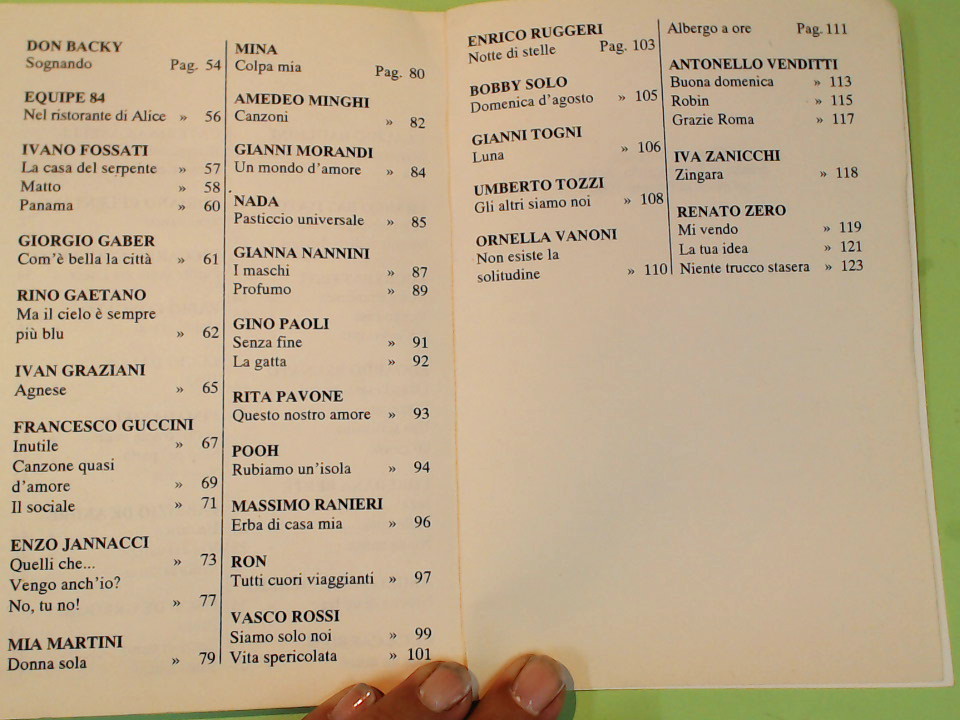 DON BACKY
Sognando Pag. 54
EQUIPE 84
Nel ristorante di Alice » 56
IVANO FOSSATI
La casa del serpente » 57
Matto » 58
Panama » 60
GIORGIO GABER
Com'è bella la città » 61
RINO GAETANO
Ma il cielo è sempre
più blu » 62
IVAN GRAZIANI
Agnese » 65
FRANCESCO GUCCINI
Inutile » 67
Canzone quasi
d'amore » 69
Il sociale » 71
ENZO JANNACCI
Quelli che... » 73
Vengo anch'io?
No, tu no! » 77
MIA MARTINI
Donna sola » 79
MINA
Colpa mia Pag. 80
AMEDEO MINGHI
Canzoni » 82
GIANNI MORANDI
Un mondo d'amore » 84
NADA
Pasticcio universale » 85
GIANNA NANNINI
I maschi » 87
Profumo » 89
GINO PAOLI
Senza fine » 91
La gatta » 92
RITA PAVONE
Questo nostro amore » 93
POOH
Rubiamo un'isola » 94
MASSIMO RANIERI
Erba di casa mia » 96
RON
Tutti cuori viaggianti » 97
VASCO ROSSI
Siamo solo noi » 99
Vita spericolata » 101
ENRICO RUGGERI
Notte di stelle Pag. 103
BOBBY SOLO
Domenica d'agosto » 105
GIANNI TOGNI
Luna » 106
UMBERTO TOZZI
Gli altri siamo noi » 108
ORNELLA VANONI
Non esiste la
solitudine » 110
Albergo a ore Pag. 111
ANTONELLO VENDITTI
Buona domenica » 113
Robin » 115
Grazie Roma » 117
IVA ZANICCHI
Zingara » 118
RENATO ZERO
Mi vendo » 119
La tua idea » 121
Niente trucco stasera » 123